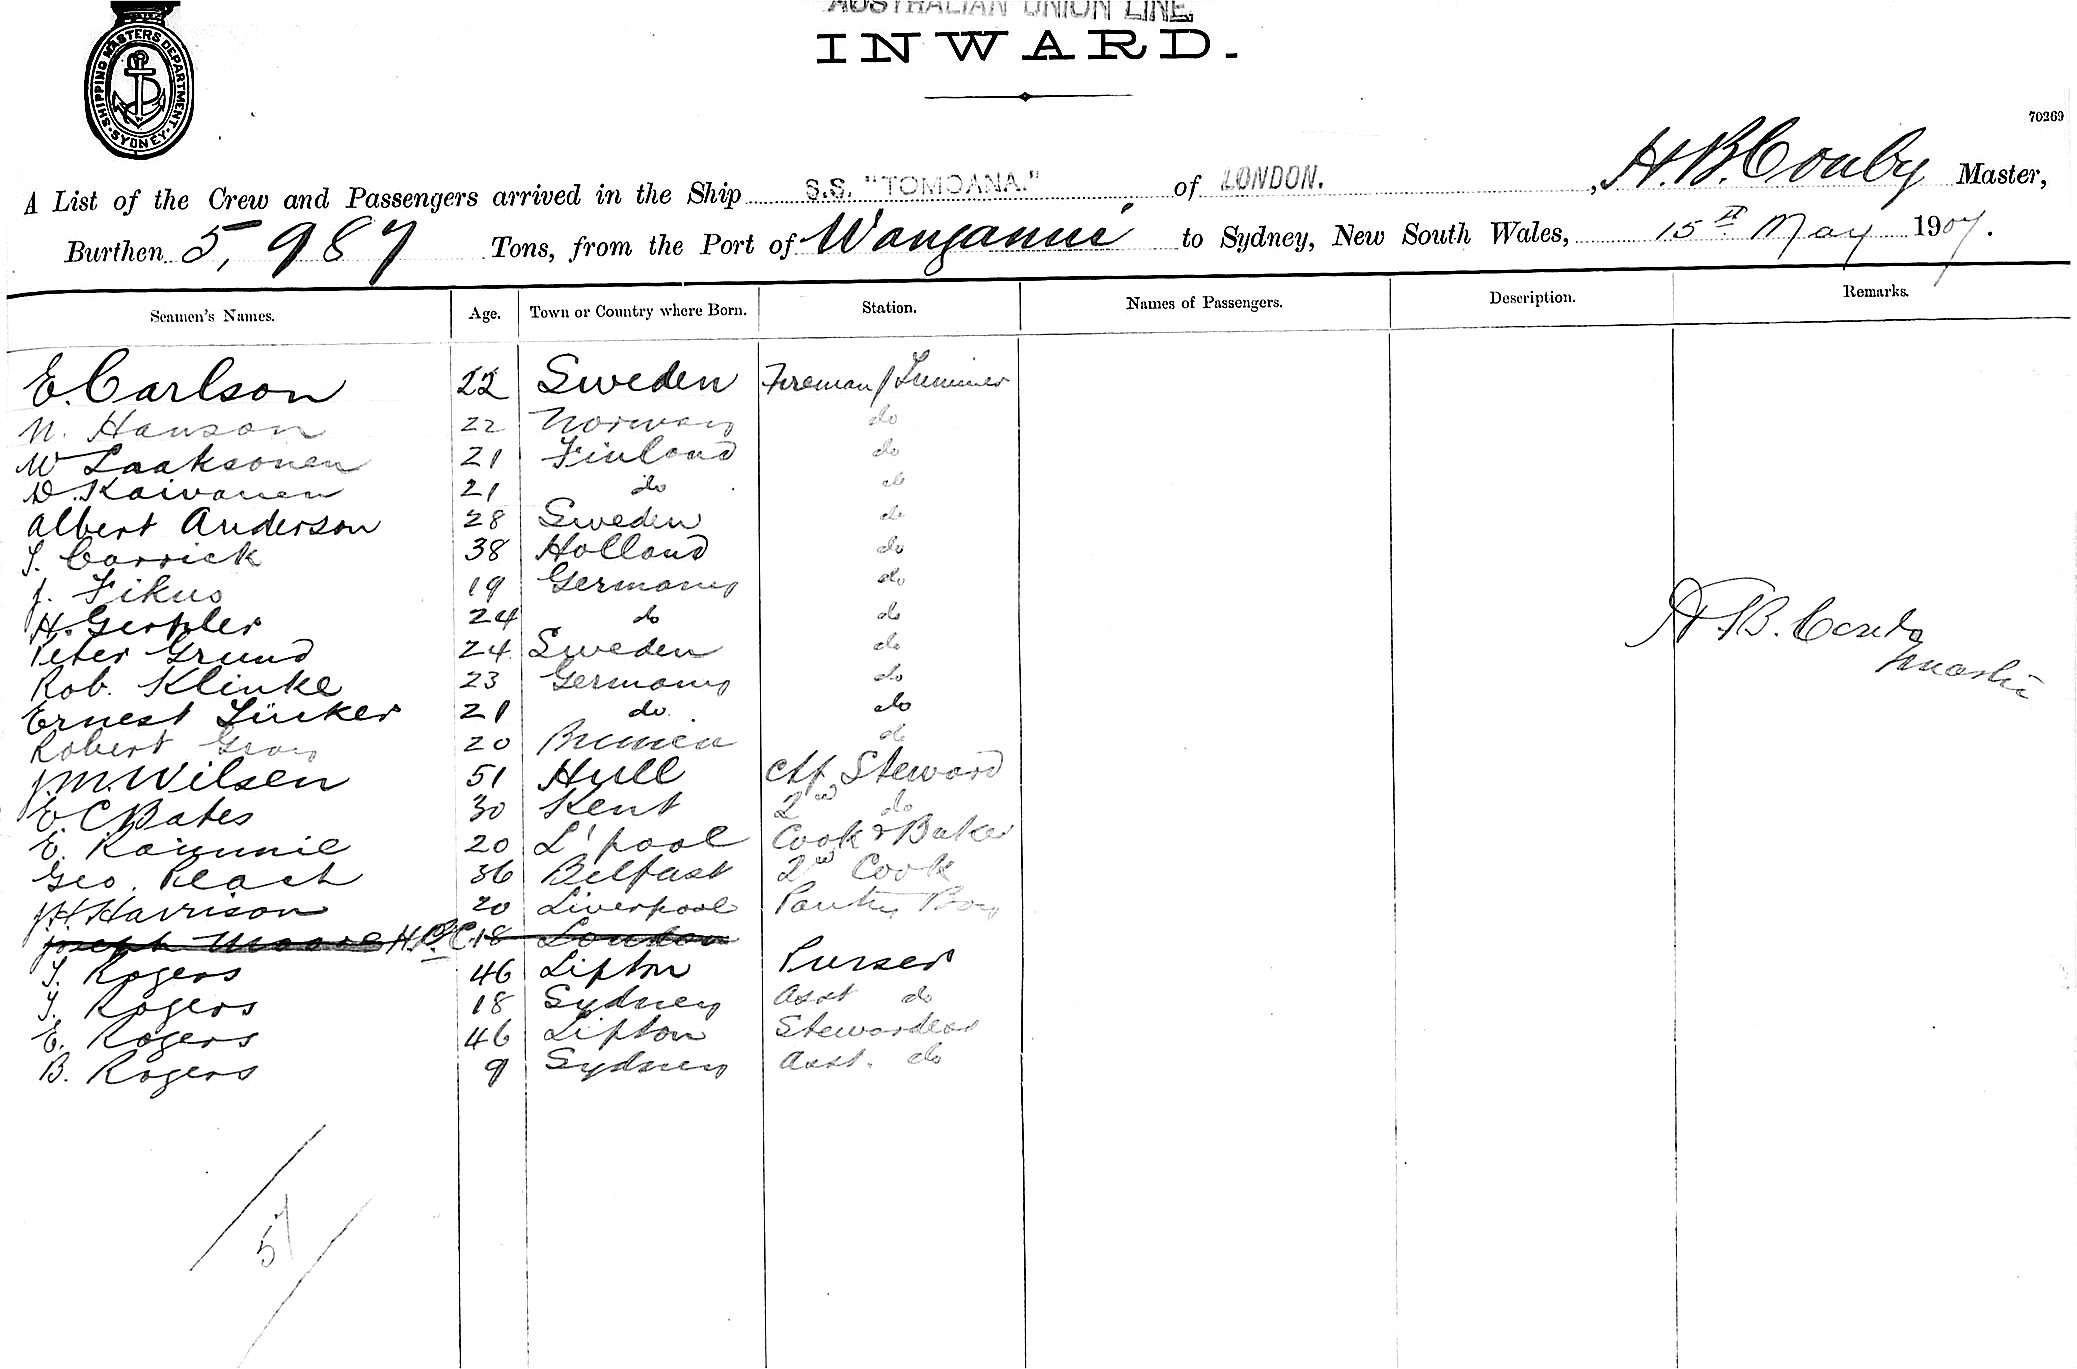 AUSTRALIAN UNION LINE
INWARD.
SHIPPING MASTERS DEPARTMENT SYDNEY
70269
A List of the Crew and Passengers arrived in the Ship S.S. "TOMOANA." of LONDON. , H. B. Conby Master,
Burthen 5,987 Tons, from the Port of Wanganui to Sydney, New South Wales, 15th May 1907.
Seamen's Names. Age. Town or Country where Born. Station. Names of Passengers. Description. Remarks.
E. Carlson 22 Sweden Fireman / Trimmer
N. Hanson 22 Norway do
W Laaksonen 21 Finland do
D. Kaivanen 21 do do
Albert Anderson 28 Sweden do
T. Carrick 38 Holland do
J. Fikus 19 Germany do
H. 24 do do
Peter Grund 24 Sweden do
H. B. Conby
Master
Rob. Klinke 23 Germany do
Ernest Lüker 21 do do
Robert Gray 20 Bremen do
J. M. Wilsen 51 Hull Chf Steward
E. C Bates 30 Kent 2nd do
E. 20 L'pool Cook & Baker
Geo. Peach 36 Belfast 2nd Cook
J. H. Harrison 20 Liverpool Pantry Boy
Joseph Moore H.B.C. 18 London
T. Rogers 46 Lipton Purser
T. Rogers 18 Sydney Asst do
E. Rogers 46 Lipton Stewardess
B. Rogers 9 Sydney Asst. do
51